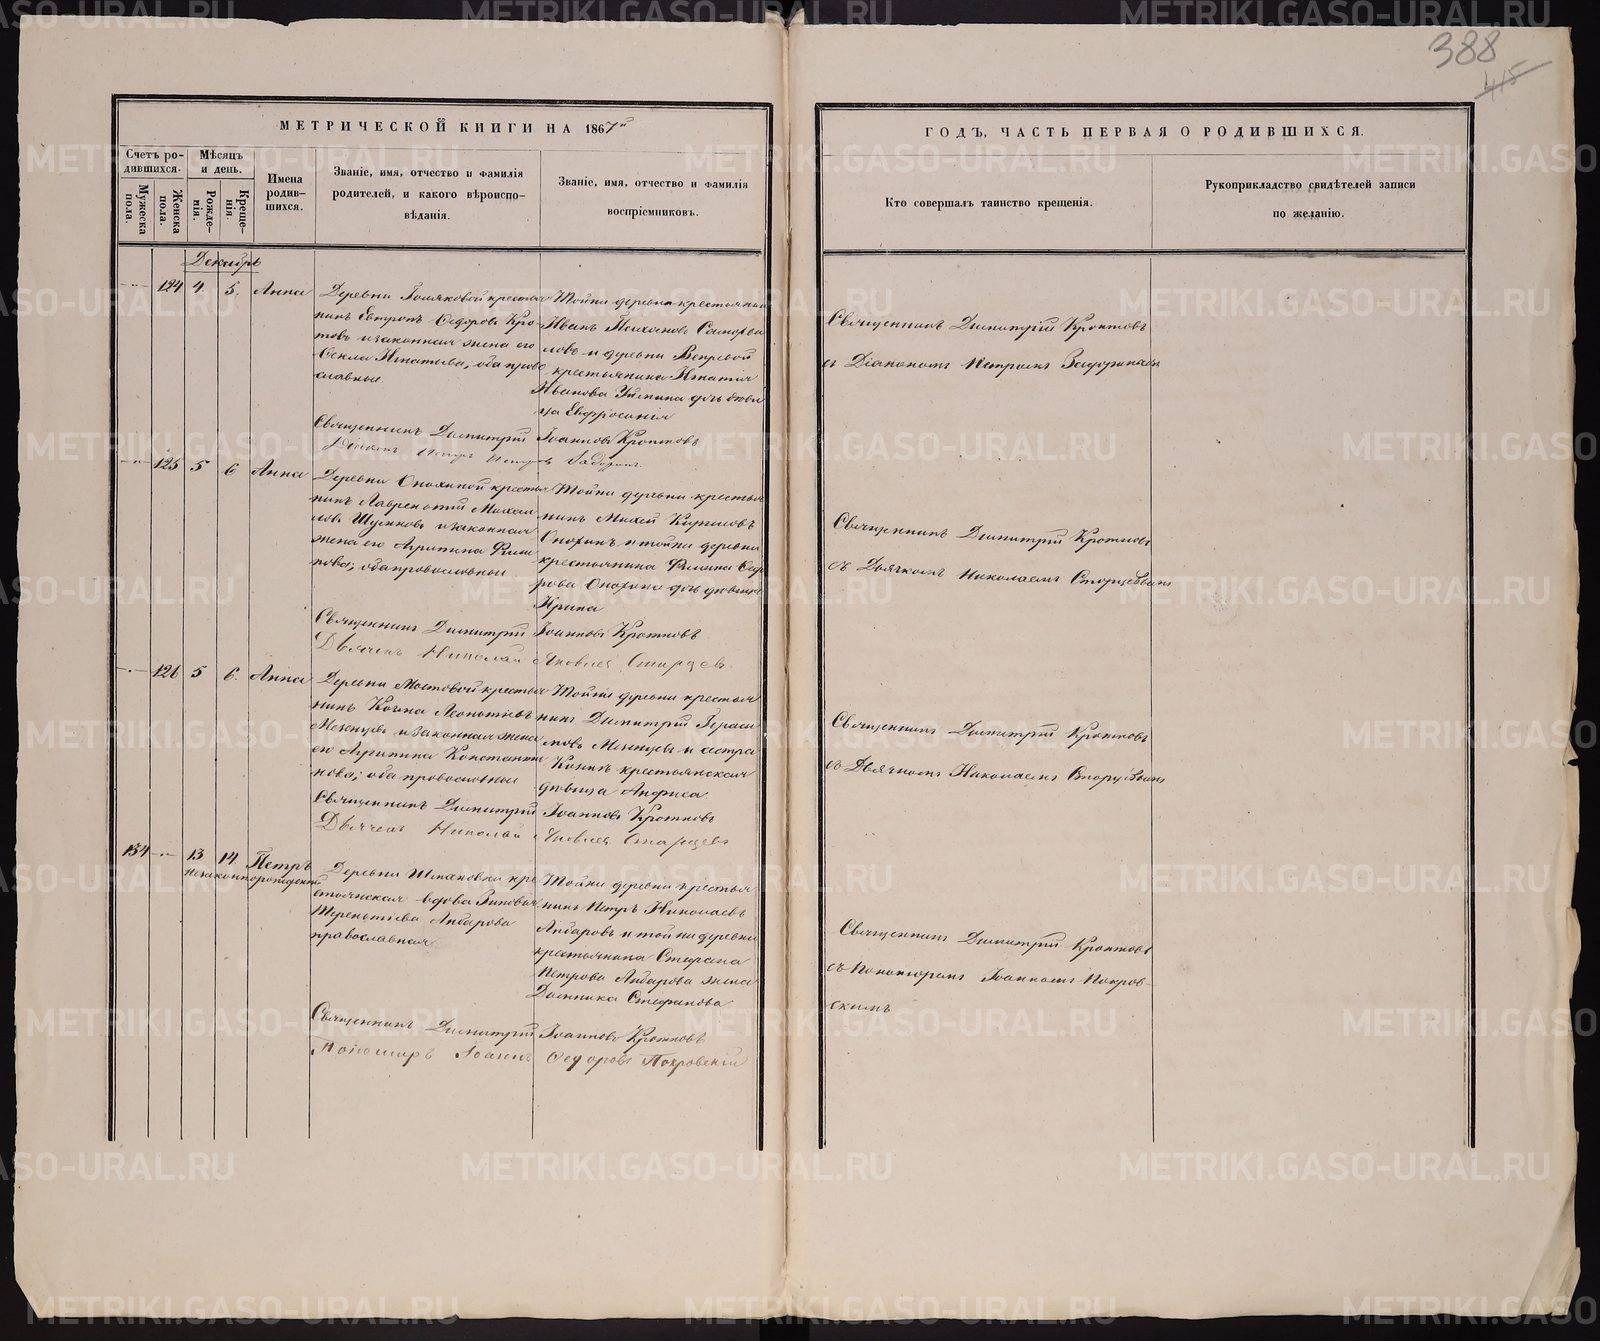 388
415
МЕТРИЧЕСКОЙ КНИГИ НА 1867й
ГОДЪ, ЧАСТЬ ПЕРВАЯ О РОДИВШИХСЯ.
Счетъ ро-
дившихся.
Мужеска
пола.
Женска
пола.
Мѣсяцъ
и день.
Рожде-
нія.
Креще-
нія.
Имена
родив-
шихся.
Званіе, имя, отчество и фамилія
родителей, и какого вѣроиспо-
вѣданія.
Званіе, имя, отчество и фамилія
воспріемниковъ.
Кто совершалъ таинство крещенія.
Рукоприкладство свидѣтелей записи
по желанію.
Декабрь
124 4. 5. Анна
Деревни крестья
нинъ Евтропъ Ѳедоровъ Кро-
товъ и законная жена его
Ѳекла Игнатьева, оба право
славные
Тойже деревни крестьянинъ
Иванъ
ловъ и деревни
крестьянина Игнатія
Иванова дочь дѣви
ца Евфросинія
Священникъ Димитрій Кротковъ
съ Діакономъ Петромъ
Священникъ Димитрій Іоанновъ Кротковъ
Діаконъ Петръ Петровъ
125 5 6 Анна
Деревни Онохиной крестья
нинъ Лаврентій Михаи
ловъ и законная
жена его Агрипина Фили
пова; оба православные
Тойже деревни крестья
нинъ Михей Кириловъ
Онохинъ и тойже деревни
крестьянина Филипа Ѳедо
рова Онохина дочь дѣвица
Ирина
Священникъ Димитрій Кротковъ
съ Дьячкомъ Николаемъ Старцевымъ
Священникъ Димитрій Іоанновъ Кротковъ
Дьячекъ Николай Яковлевъ Старцевъ
126 5 6. Анна
Деревни Мостовой крестья
нинъ Козма Леонтіевъ
Мезенцевъ и законная жена
его Агрипина Константи
нова; оба православные
Тойже деревни крестья
нинъ Димитрій Гераси
мовъ Мезенцевъ и сестра
Козмы крестьянская
дѣвица Анфиса
Священникъ Димитрій Кротковъ
съ Дьячкомъ Николаемъ Старцевымъ
Священникъ Димитрій Іоанновъ Кротковъ
Дьячекъ Николай Яковлевъ Старцевъ
134 13 14 Петръ
незаконнорожденный
Деревни кре
стьянская вдова Зиновія
Терентіева Амбарова
православная
Тойже деревни крестья
нинъ Петръ Николаевъ
Амбаровъ и тойже деревни
крестьянина Стефана
Петрова Амбарова жена
Домника Стефанова
Священникъ Димитрій Кротковъ
съ Пономаремъ Іоанномъ Покров-
скимъ
Священникъ Димитрій Іоанновъ Кротковъ
Пономарь Іоаннъ Ѳедоровъ Покровскій